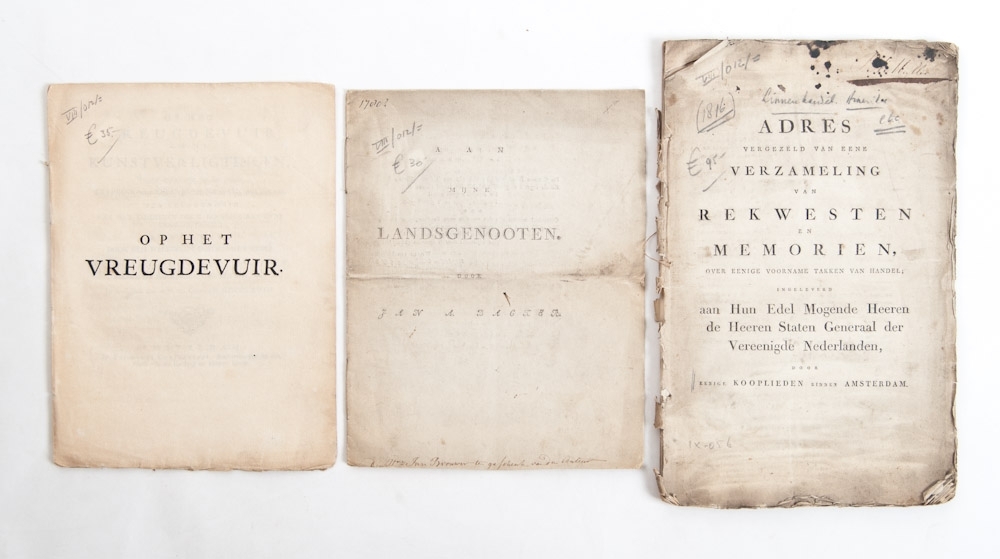 VIII/012/=
€ 35,-
OP HET
VREUGDEVUIR.
1700?
VIII/012/=
€ 30,-
AAN
MIJNE
LANDSGENOOTEN.
DOOR
JAN A BACKER
VIII/012/=
(1816)
Binnenhandel
etc
€ 95,-
ADRES
VERGEZELD VAN EENE
VERZAMELING
VAN
REKWESTEN
EN
MEMORIEN,
OVER EENIGE VOORNAME TAKKEN VAN HANDEL;
INGELEVERD
aan Hun Edel Mogende Heeren
de Heeren Staten Generaal der
Vereenigde Nederlanden,
DOOR
EENIGE KOOPLIEDEN BINNEN AMSTERDAM.
IX-056